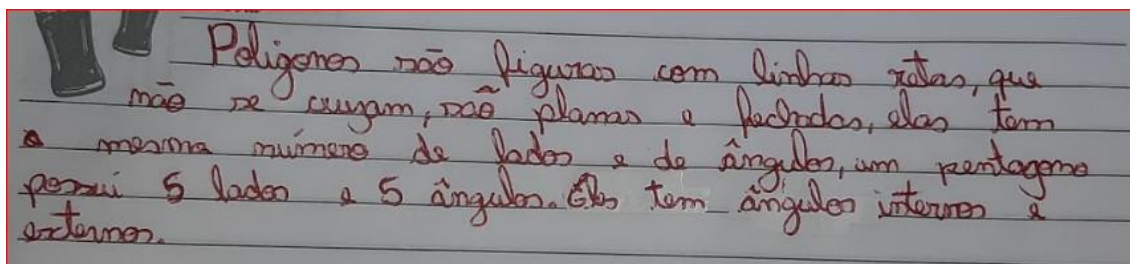 Poligonos são figuras com linhas retas, que
não se cruzam, são planas e fechadas, elas tem
o mesmo número de lados e de ângulos, um pentagono
possui 5 lados e 5 ângulos. Eles tem ângulos internos e
externos.